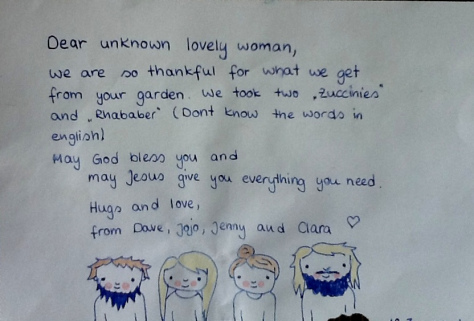 Dear unknown lovely woman,
we are so thankful for what we get
from your garden. We took two „Zuccinies"
and „Rhababer" (Dont know the words in
english)
May God bless you and
may Jesus give you everything you need.
Hugs and love,
from Dave, Jojo, Jenny and Clara ♡